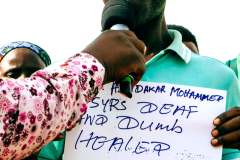 DAKAR MOHAMMED
5YRS DEAF
AND DUMB
HEALED